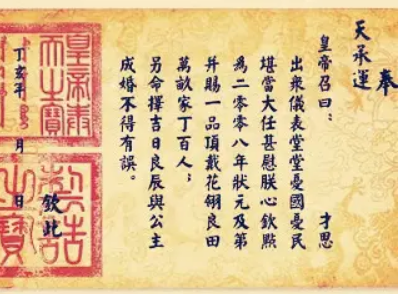 奉
天承運
皇帝召曰： 才思
出衆儀表堂堂憂國憂民
堪當大任甚慰朕心欽點
為二零零八年狀元及第
并賜一品頂戴花翎良田
萬畝家丁百人；
另命擇吉日良辰與公主
成婚不得有誤。
欽此
丁亥年 月 日
皇帝奉
天之寶